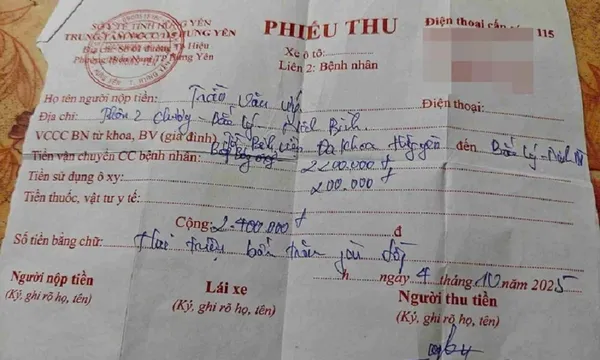 SỞ Y TẾ TỈNH HƯNG YÊN
TRUNG TÂM VCCC 115 HƯNG YÊN
Địa Chỉ: Số 01 đường TP Hiệu
Phường Hiến Nam, TP Hưng Yên
PHIẾU THU
Xe ô tô:
Liên 2: Bệnh nhân
Điện thoại 115
Họ tên người nộp tiền: Trần Văn
Điện thoại:
Địa chỉ: Thôn 2 - Bắc Lý - Ninh Bình.
VCCC BN từ khoa, BV (gia đình) Bệnh viện Đa khoa đến Bắc Lý -
Tiền vận chuyển CC bệnh nhân: 2200.000 đ
Tiền sử dụng ô xy: 200.000
Tiền thuốc, vật tư y tế:
Cộng: 2.400.000 đ
Số tiền bằng chữ: Hai triệu bốn trăm đồng
h ngày 4 tháng 10 năm 2025
Người nộp tiền
(Ký, ghi rõ họ, tên)
Lái xe
(Ký, ghi rõ họ, tên)
Người thu tiền
(Ký, ghi rõ họ, tên)